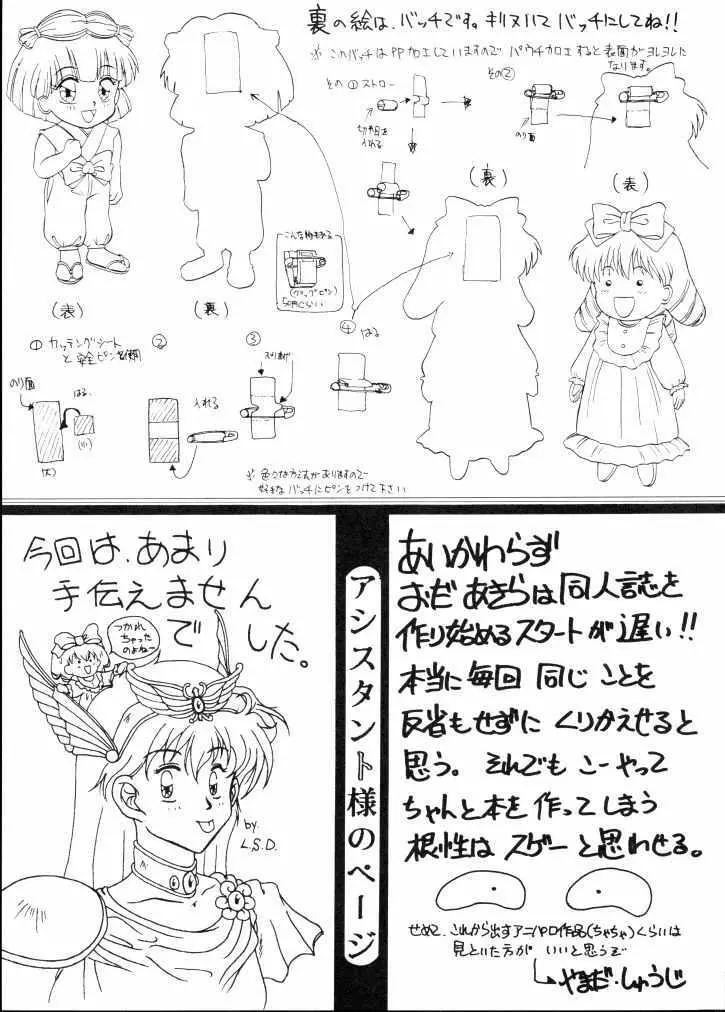 裏の絵は、バッチです。キリヌいてバッチにしてね!!
※このバッチはPP加工していますのでパウチ加工すると表面がヨレヨレに
なります。
その①ストロー
切れ目を
入れる
その②
のり面
(裏)
(表)
(表)
(裏)
こんな物もある
(クリップピン)
50円くらい
①カッティングシート
と安全ピンを用意
のり面
はる
(大)
(小)
②
入れる
③
④はる
※色々な方法がありますので
好きなバッチにピンをつけて下さい
今回は、あまり
手伝えません
でした。
つかれ
ちゃった
のよねー
by.
L.S.D.
アシスタント様のページ
あいかわらず
おだあきらは同人誌を
作り始めるスタートが遅い!!
本当に毎回同じことを
反省もせずにくりかえせると
思う。それでもこーやって
ちゃんと本を作ってしまう
根性はスゲーと思わせる。
せめて、これから出すアニパロ作品(ちゃちゃ)くらいは
見といた方がいいと思うぞ
やまだ・しゅうじ